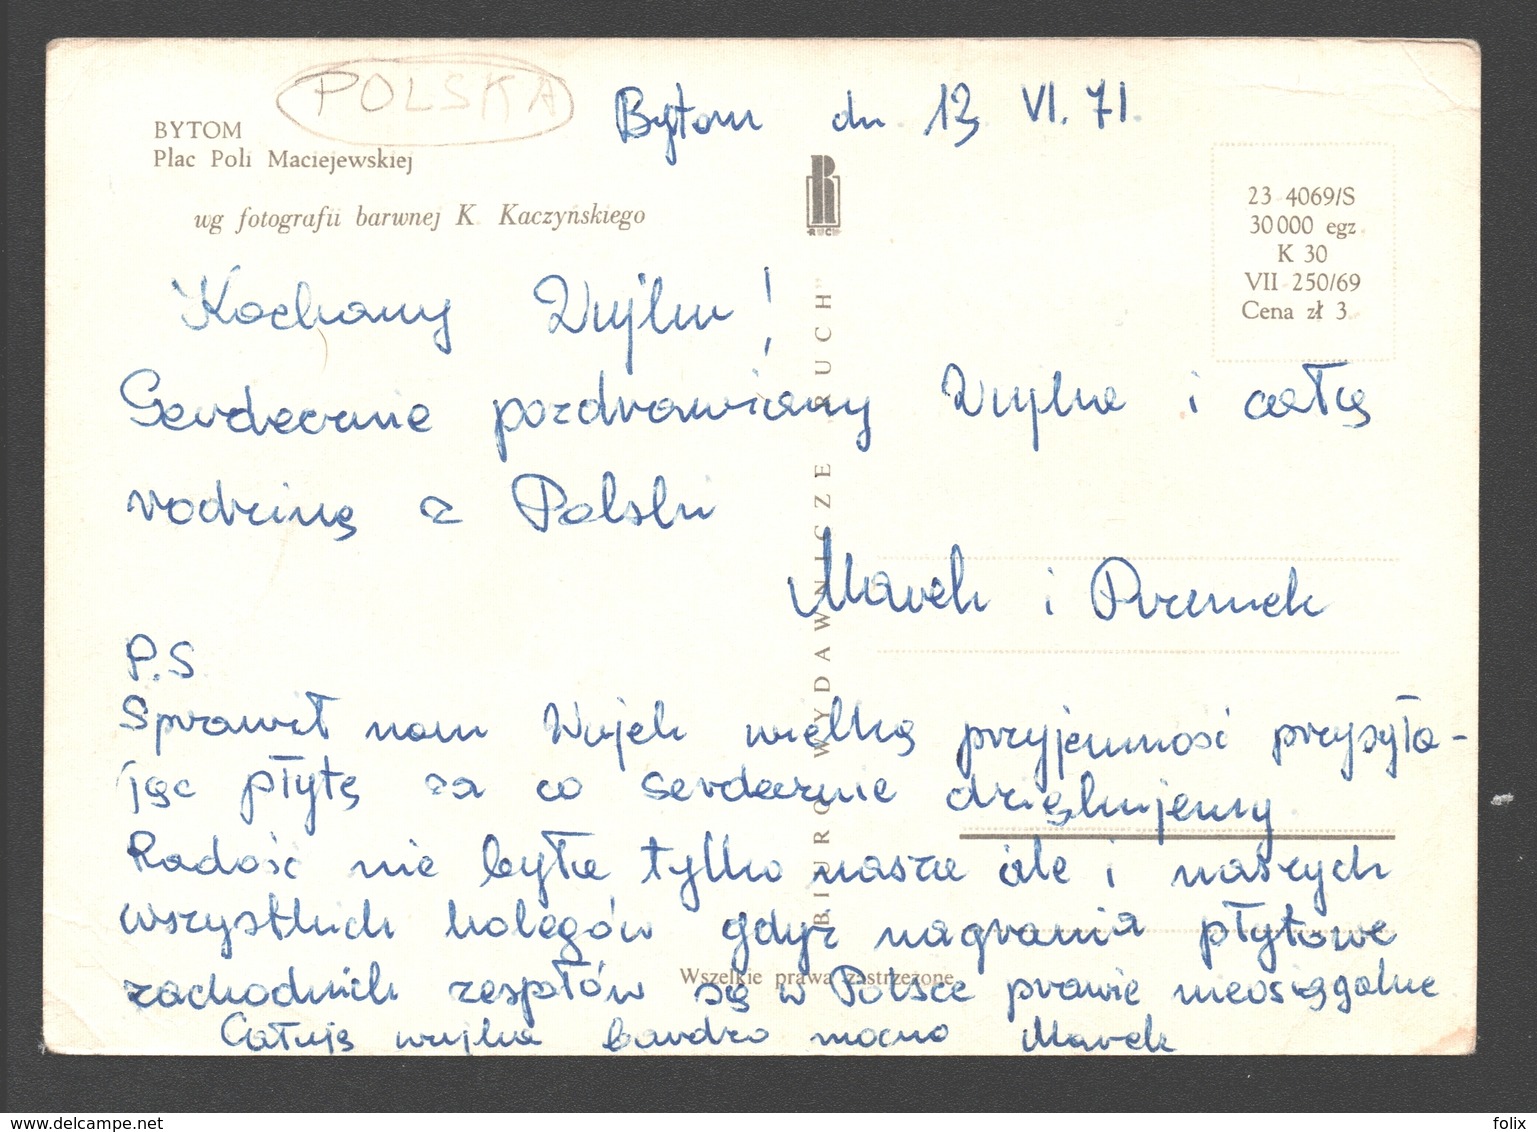 POLSKA
BYTOM
Plac Poli Maciejewskiej
wg fotografii barwnej K. Kaczyńskiego
Bytom dn 13 VI. 71.
RUCH
23 4069/S
30 000 egz
K 30
VII 250/69
Cena zł 3
Kochany Wujku!
Serdecznie pozdrawiamy Wujka i całą
rodziną z Polski
Marek i Przemek
BIURO WYDAWNICZE „RUCH”
P.S
Sprawił nam Wujek wielką przyjemność przysyła-
jąc płytę za co serdecznie dziękujemy
Radość nie była tylko nasza ale i naszych
wszystkich kolegów gdyż nagrania płytowe
zachodnich zespołów są w Polsce prawie nieosiągalne
Wszelkie prawa zastrzeżone
Całuję wujka bardzo mocno Marek
www.delcampe.net
folix